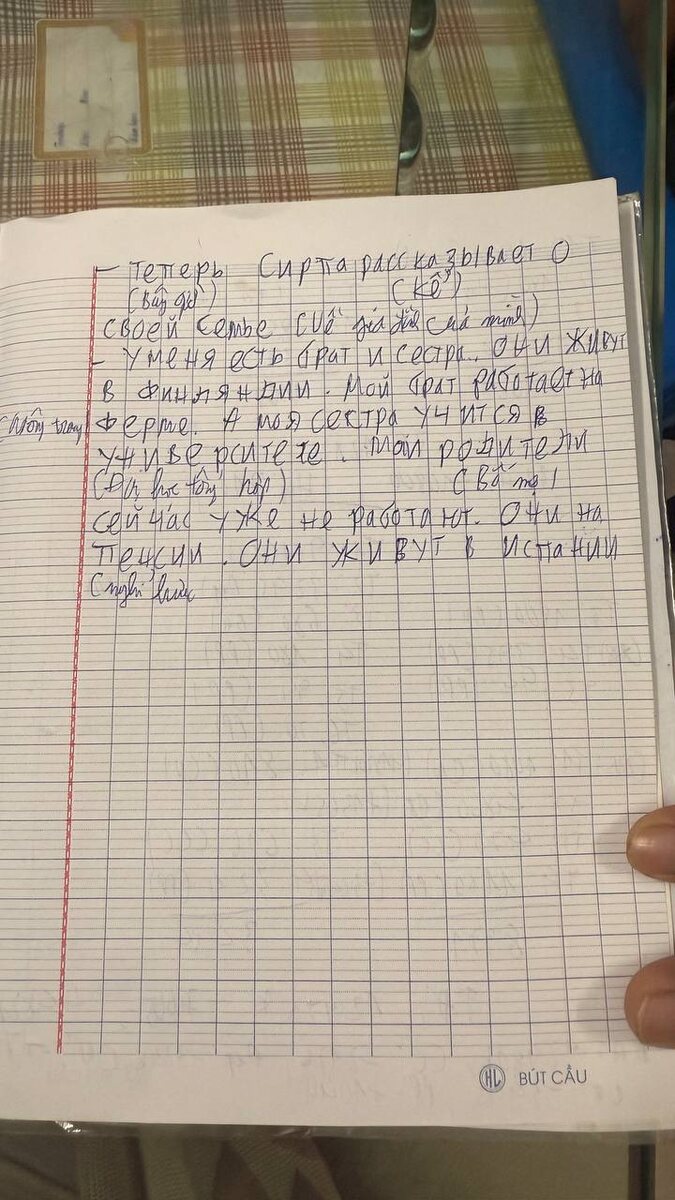 - Теперь Сирпа рассказывает о
(Bây giờ) (kể)
своей семье (Về gia đình của mình)
- У меня есть брат и сестра. Они живут
в Финляндии. Мой брат работает на
(Nông trang) ферме. А моя секстра учится в
университете. Мои родители
(Đại học tổng hợp) (Bố mẹ)
сейчас уже не работают. Они на
пенсии. Они живут в Испании
(nghỉ hưu
HL BÚT CẦU